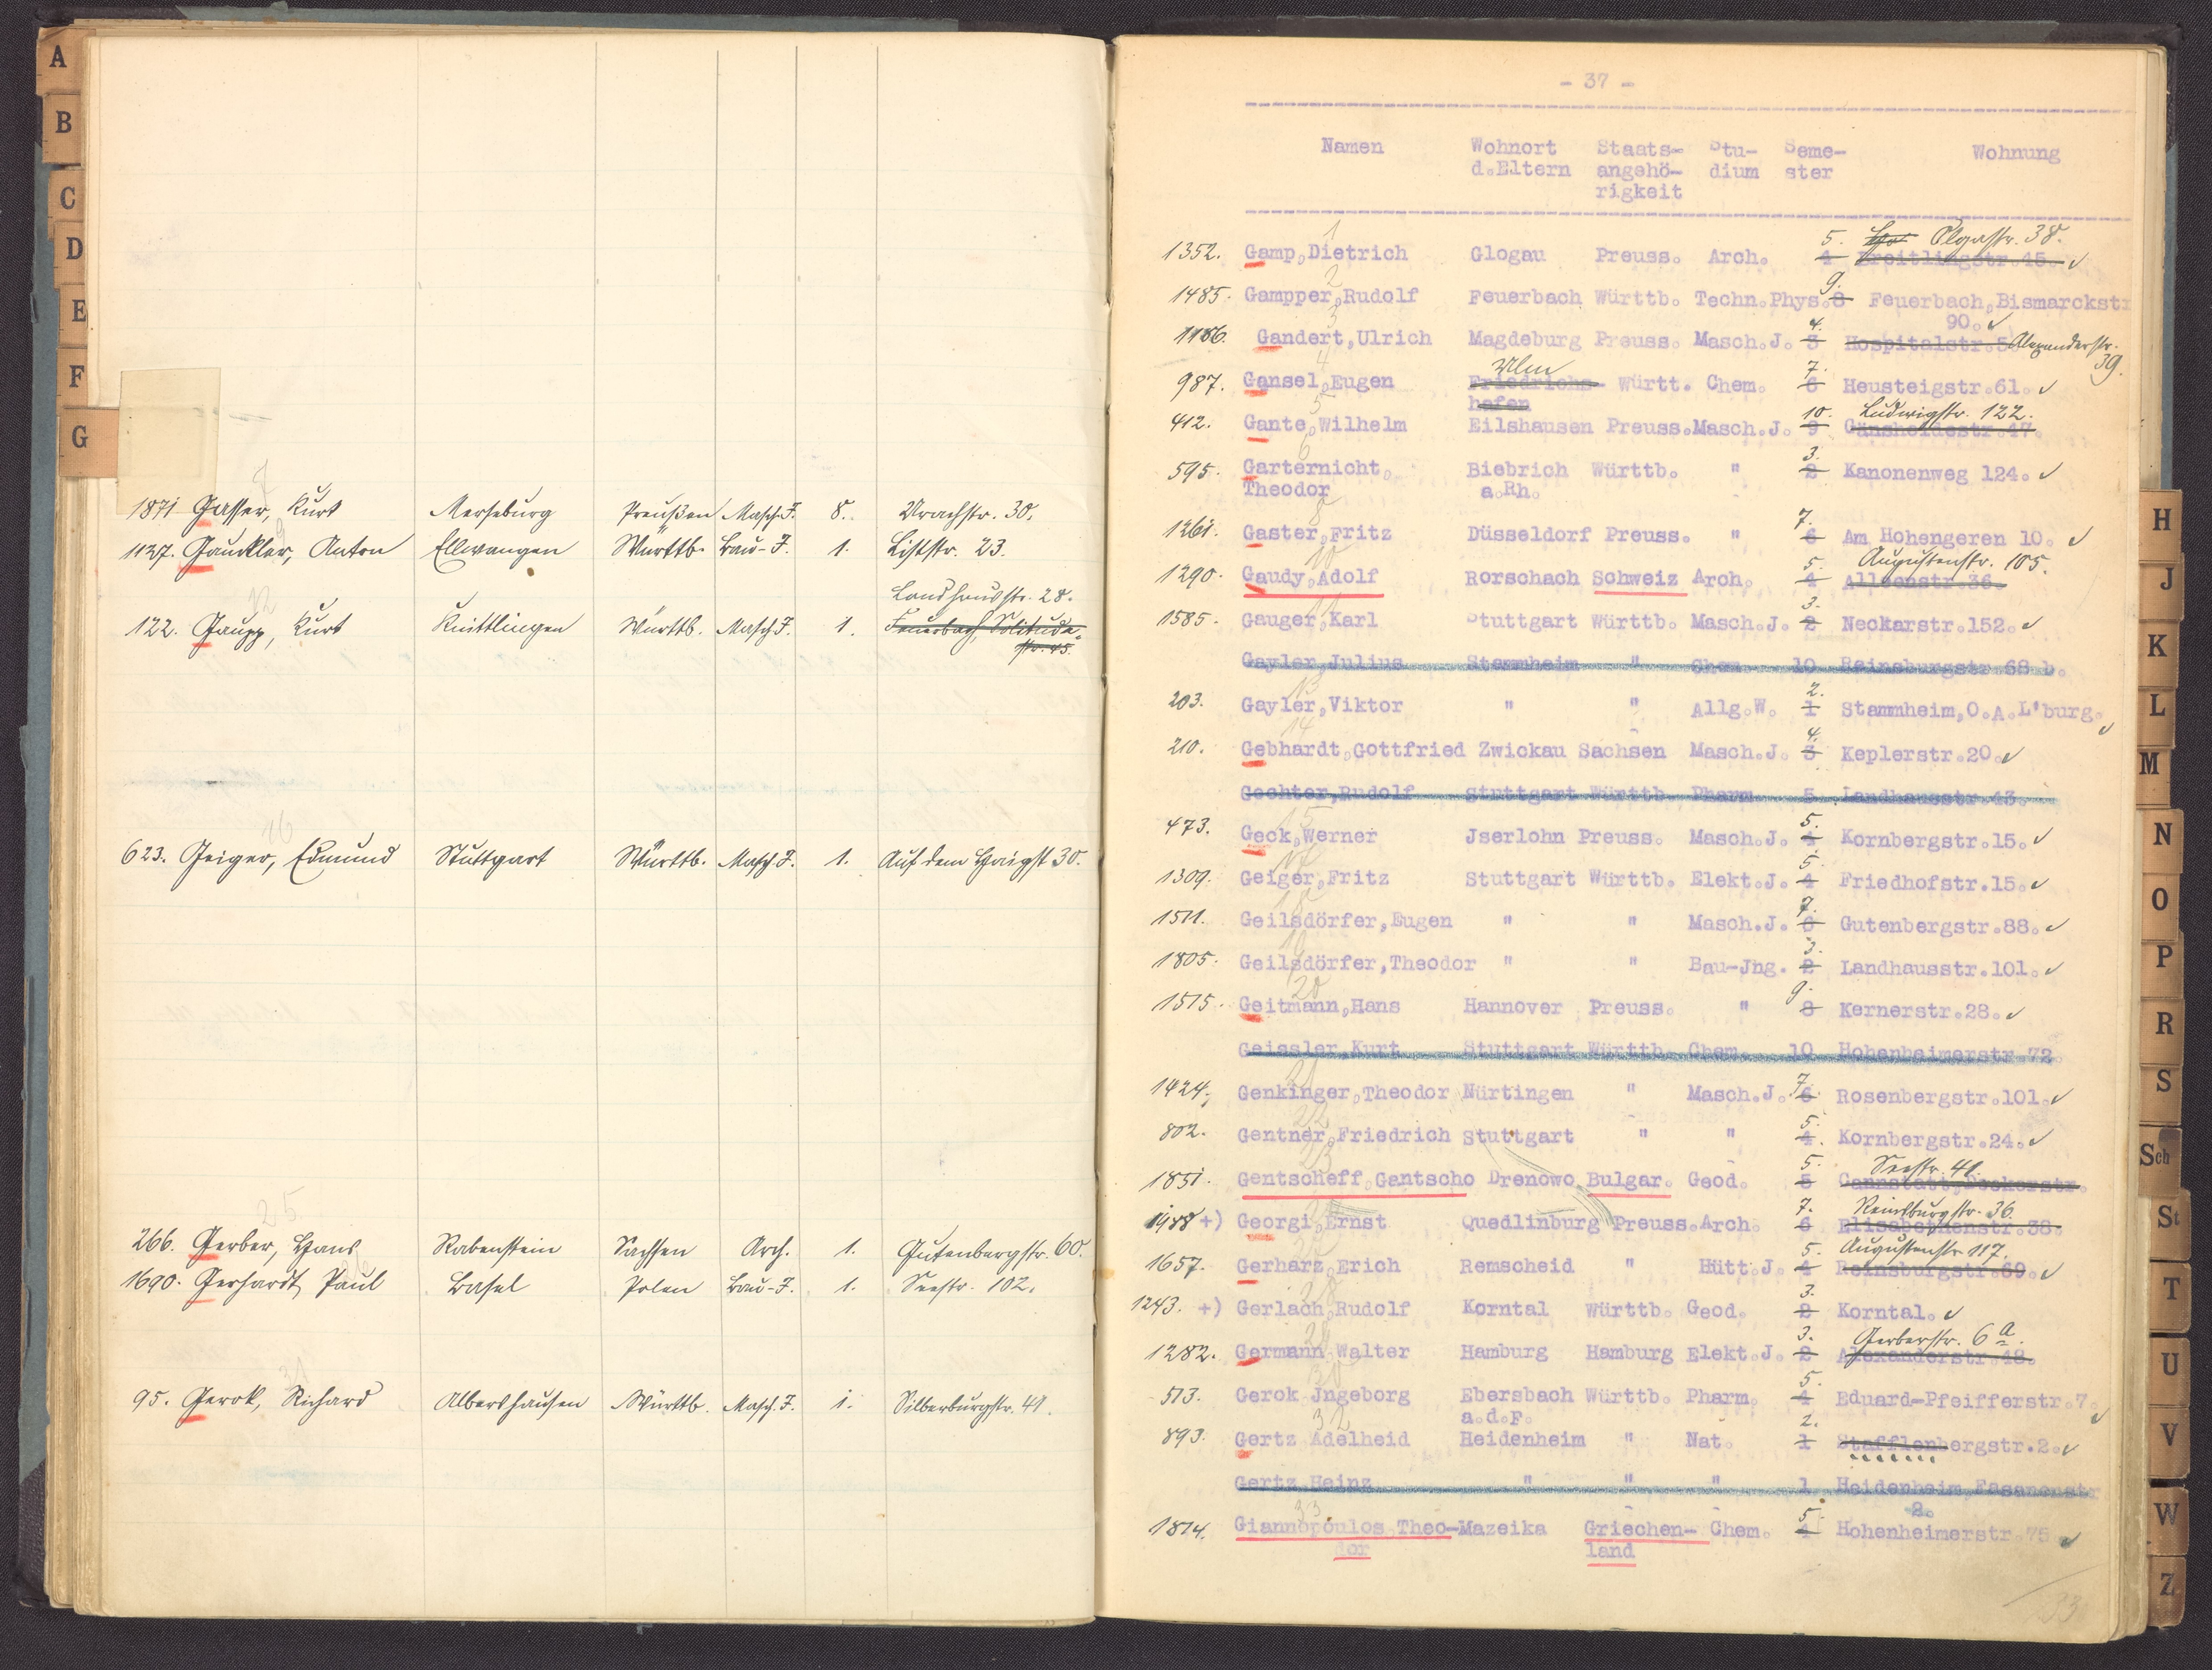 A
B
C
D
E
F
G
1871 Gasser, Kurt Merseburg Preußen Masch.J. 8. Urachstr. 30.
1127. Gaukler, Anton Ellwangen Württb. Bau-J. 1. Liststr. 23.
Landhausstr. 28.
122. Gaupp, Kurt Knittlingen Württb. Masch.J. 1. Feuerbach, Solitude-
str. 45.
623. Geiger, Edmund Stuttgart Württb. Masch.J. 1. Auf dem Haigst 30.
266. Gerber, Hans Rabenstein Sachsen Arch. 1. Gutenbergstr. 60.
1690. Gerhardt, Paul Basel Polen Bau-J. 1. Seestr. 102.
95. Gerok, Richard Albershausen Württb. Masch.J. 1. Silberburgstr. 41.
- 37 -
Namen Wohnort Staats- Stu- Seme- Wohnung
d.Eltern angehö- dium ster
rigkeit
5. Olgastr. 38.
1352. Gamp,Dietrich Glogau Preuss. Arch. 4 Breitlingstr.45.
9.
1485. Gampper,Rudolf Feuerbach Württb. Techn.Phys.8 Feuerbach,Bismarckstr
90.
4.
1186. Gandert,Ulrich Magdeburg Preuss. Masch.J. 3 Hospitalstr. Alexanderstr.
39.
Ulm 7.
987. Gansel,Eugen Friedrichs- Württ. Chem. 6 Heusteigstr.61.
hafen
10. Ludwigstr. 122.
412. Gante,Wilhelm Eilshausen Preuss.Masch.J. 9 Gänsheidestr.47.
3.
595. Garternicht, Biebrich Württb. " 2 Kanonenweg 124.
Theodor a.Rh.
7.
1261. Gaster,Fritz Düsseldorf Preuss. " 6 Am Hohengeren 10.
5. Augustenstr. 105.
1290. Gaudy,Adolf Rorschach Schweiz Arch. 4 Alleenstr.36.
3.
1585. Gauger,Karl Stuttgart Württb. Masch.J. 2 Neckarstr.152.
Gayler,Julius Stammheim " Chem. 10 Reinsburgstr.68 b.
2.
203. Gayler,Viktor " " Allg.W. 1 Stammheim,O.A.L'burg.
4.
210. Gebhardt,Gottfried Zwickau Sachsen Masch.J. 3 Keplerstr.20.
Gechter,Rudolf Stuttgart Württb. Pharm. 5 Landhausstr.43.
5.
473. Geck,Werner Jserlohn Preuss. Masch.J. 4 Kornbergstr.15.
5.
1309. Geiger,Fritz Stuttgart Württb. Elekt.J. 4 Friedhofstr.15.
7.
1511. Geilsdörfer,Eugen " " Masch.J. 6 Gutenbergstr.88.
3.
1805. Geilsdörfer,Theodor " " Bau-Jng. 2 Landhausstr.101.
9.
1515. Geitmann,Hans Hannover Preuss. " 8 Kernerstr.28.
Geissler,Kurt Stuttgart Württb. Chem. 10 Hohenheimerstr.72.
7.
1424. Genkinger,Theodor Nürtingen " Masch.J. 6 Rosenbergstr.101.
5.
802. Gentner,Friedrich Stuttgart " " 4. Kornbergstr.24.
5. Seestr. 41.
1851. Gentscheff,Gantscho Drenowo,Bulgar. Geod. 5 Cannstatt,Neckarstr.
7. Reinsburgstr. 36.
+) Georgi,Ernst Quedlinburg Preuss.Arch. 6 Elisabethenstr.38.
5. Augustenstr. 117.
1657. Gerharz,Erich Remscheid " Hütt.J. 4 Reinsburgstr.69.
3.
1243. +) Gerlach,Rudolf Korntal Württb. Geod. 2 Korntal.
3. Gerberstr. 6 a.
1282. Germann Walter Hamburg Hamburg Elekt.J. 2 Alexanderstr.48.
5.
513. Gerok Jngeborg Ebersbach Württb. Pharm. 4 Eduard-Pfeifferstr.7.
a.d.F. 2.
893. Gertz Adelheid Heidenheim " Nat. 1 Stafflenbergstr.2.
Gertz Heinz " " " 1 Heidenheim,Fasanenstr
2.
5.
1814. Giannopoulos Theo-Mazeika Griechen- Chem. 4 Hohenheimerstr.75
dor land
33
H
J
K
L
M
N
O
P
R
S
Sch
St
T
U
V
W
Z